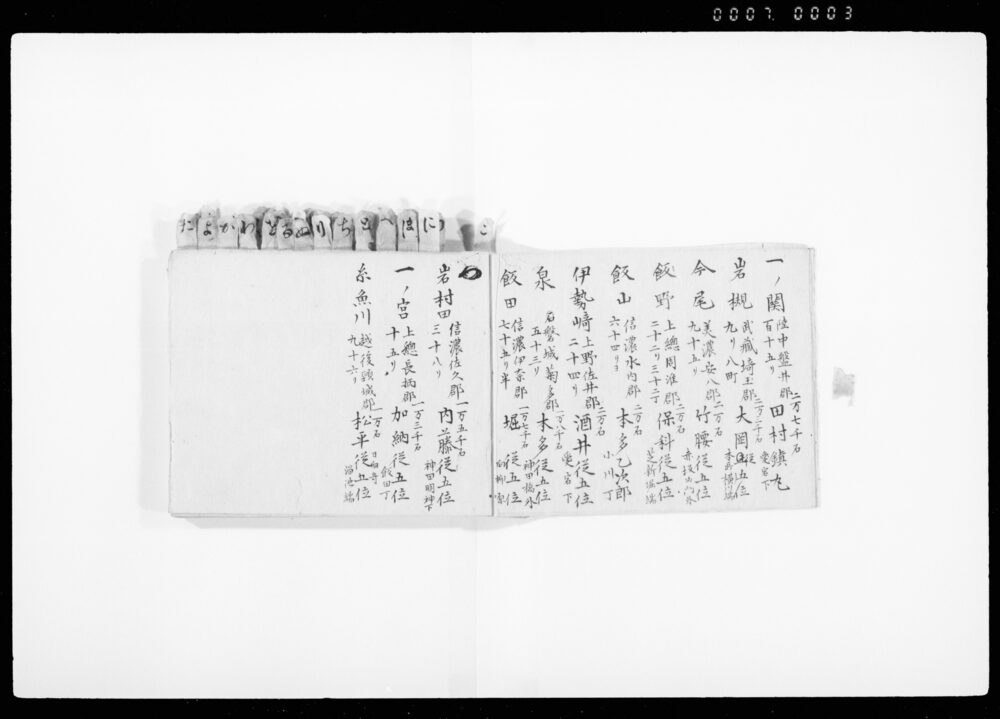 0007 0003
一ノ関 陸中磐井郡 二万七千石 田村鎮丸
百十五リ 愛宕下
岩槻 武蔵埼玉郡 二万三千石 大岡従五位
九リ八町
今尾 美濃安八郡 三万石 竹腰従五位
九十五リ
飯野 上總周淮郡 二万石 保科従五位
二十二リ三十二丁 芝新堀端
飯山 信濃水内郡 二万石 本多乙次郎
六十四リヨ 小川丁
伊勢﨑 上野佐井郡 二万石 酒井従五位
二十四リ 愛宕下
泉 石磐城菊多郡 一万八千石 本多従五位
五十三リ 神田橋外
飯田 信濃伊奈郡 一万七千石 堀従五位
七十五リ半
岩村田 信濃佐久郡 一万五千石 内藤従五位
三十八リ 神田明神下
一ノ宮 上總長柄郡 一万三千石 加納従五位
十五リ 飯田丁
糸魚川 越後頸城郡 一万石 松平従五位
九十六リ 溜池端
に
ほ
へ
と
ち
り
ぬ
る
を
わ
か
よ
た